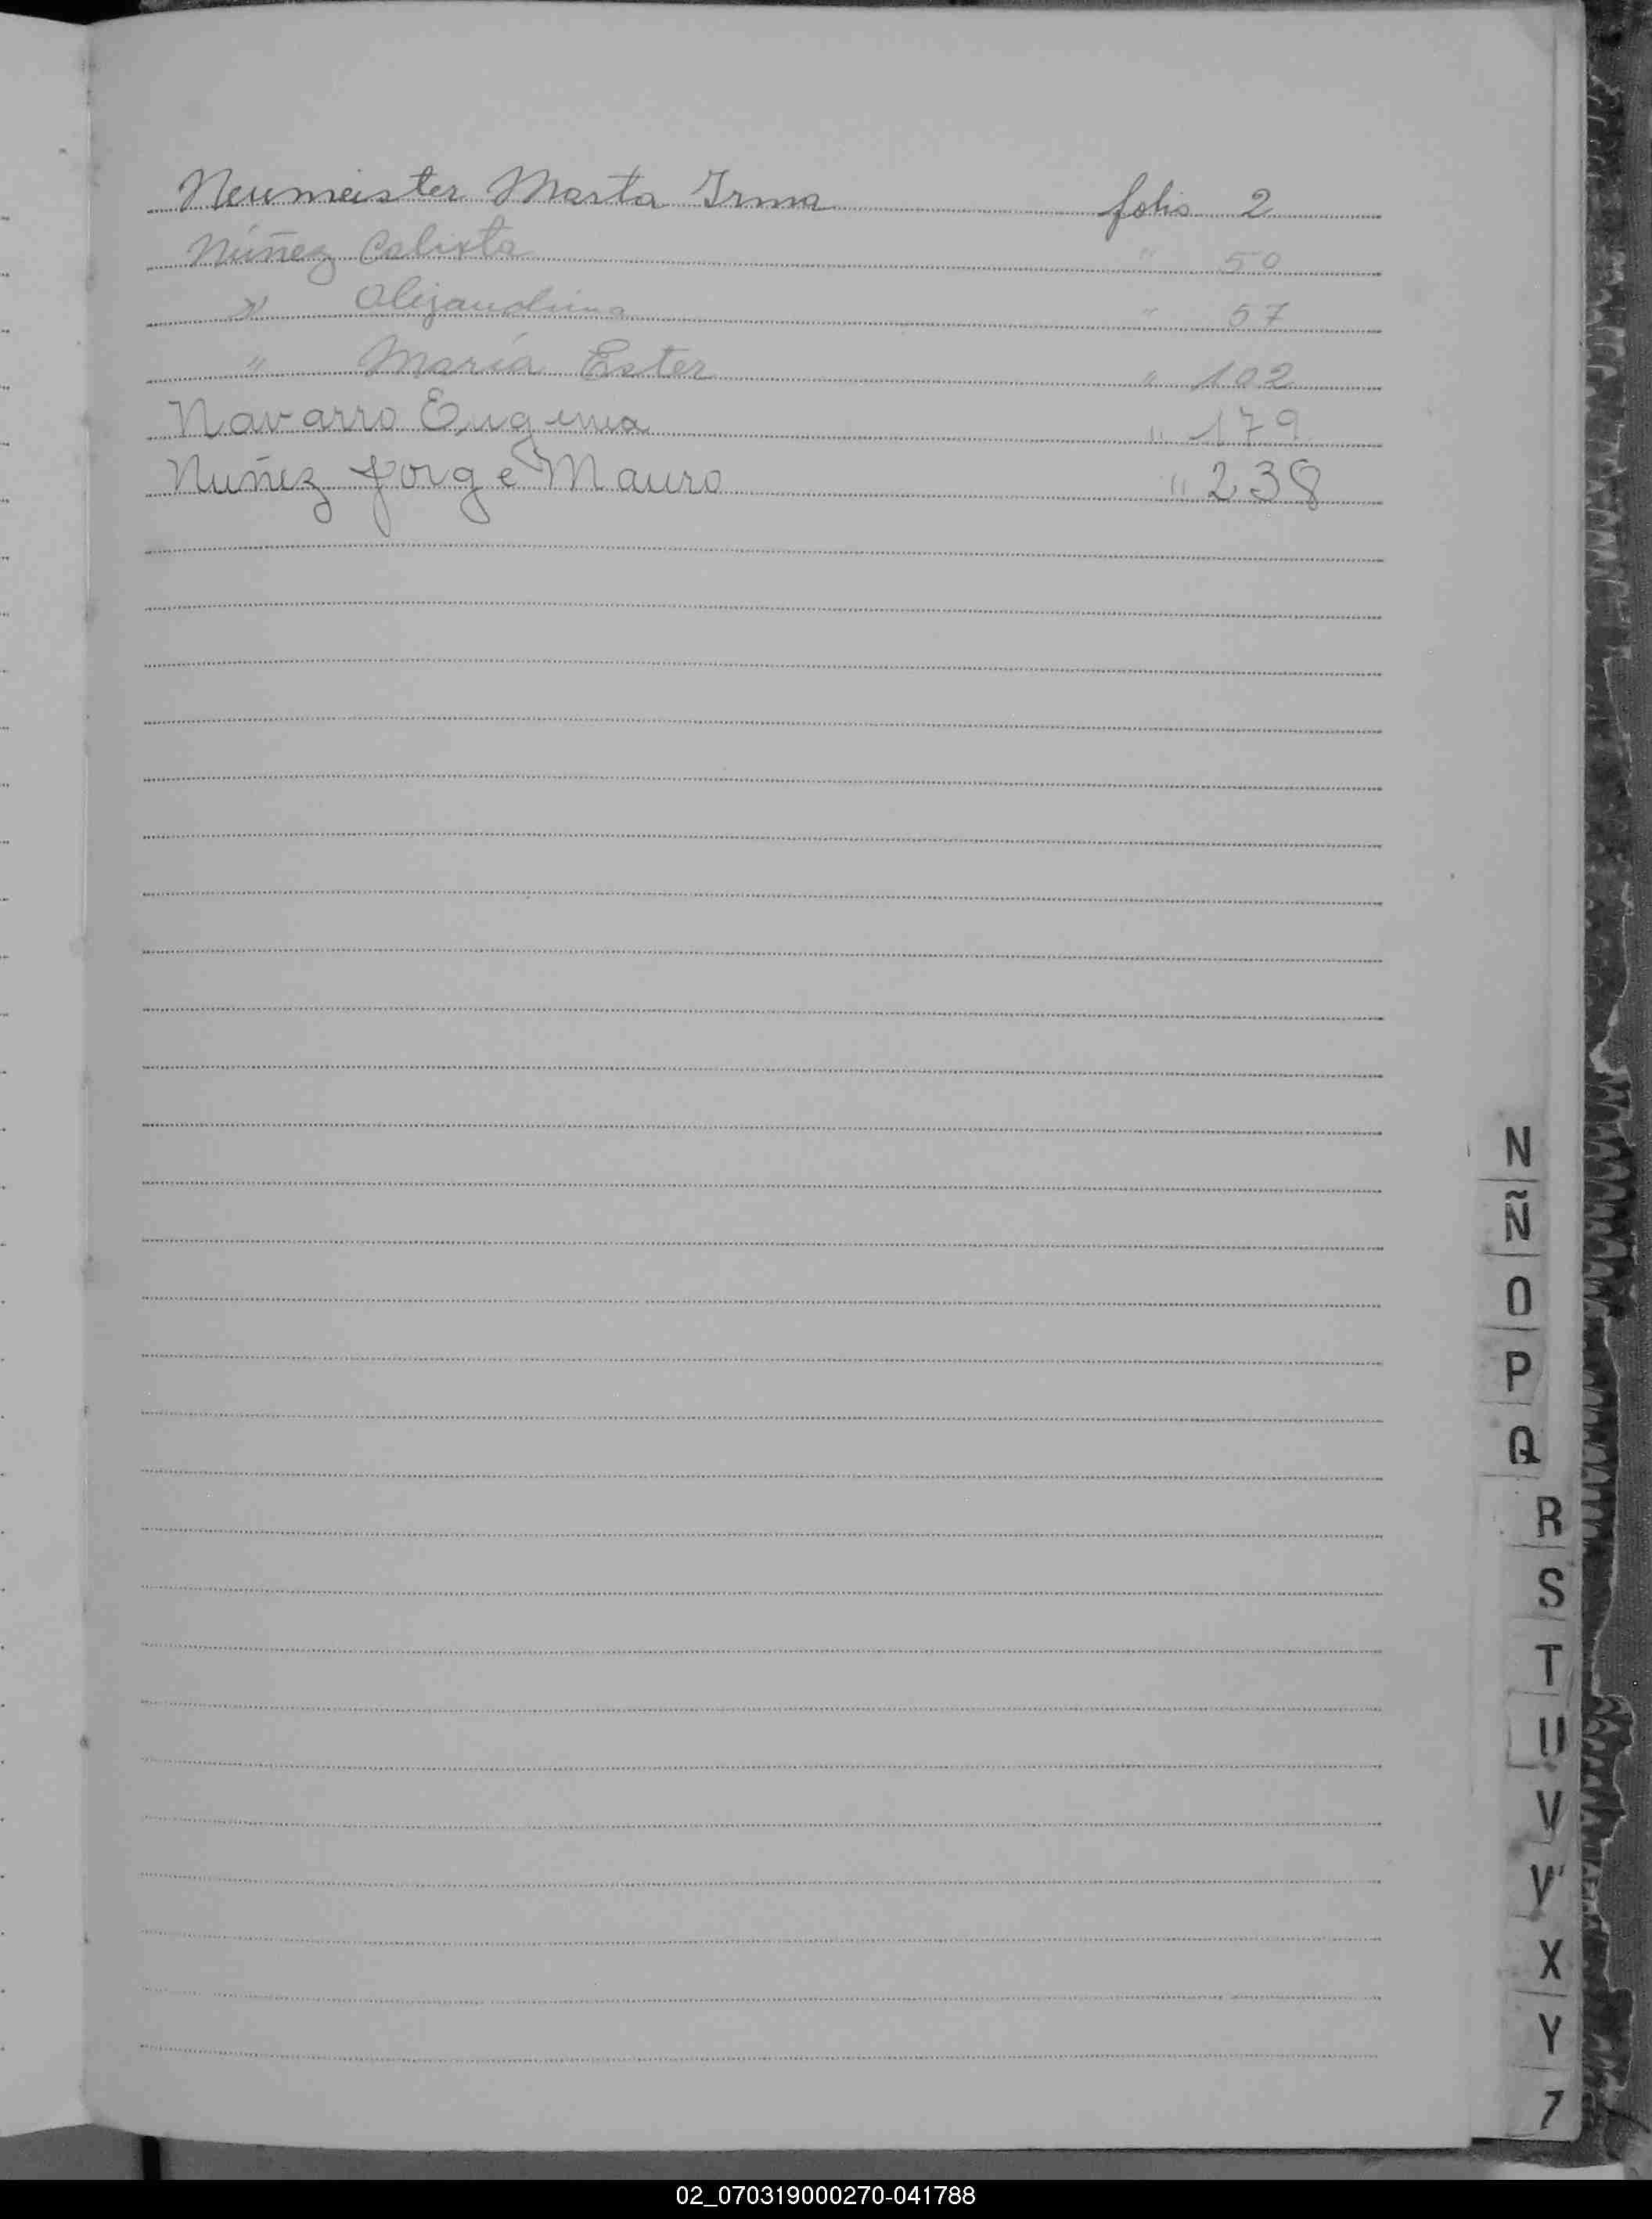 Neumeister Marta Irma folio 2
Núñez Calixta " 50
" Alejandrina " 57
" María Ester " 102
Navarro Eugenia " 179
Nuñez Jorge Mauro " 238
N
Ñ
O
P
Q
R
S
T
U
V
W
X
Y
Z
02_070319000270-041788